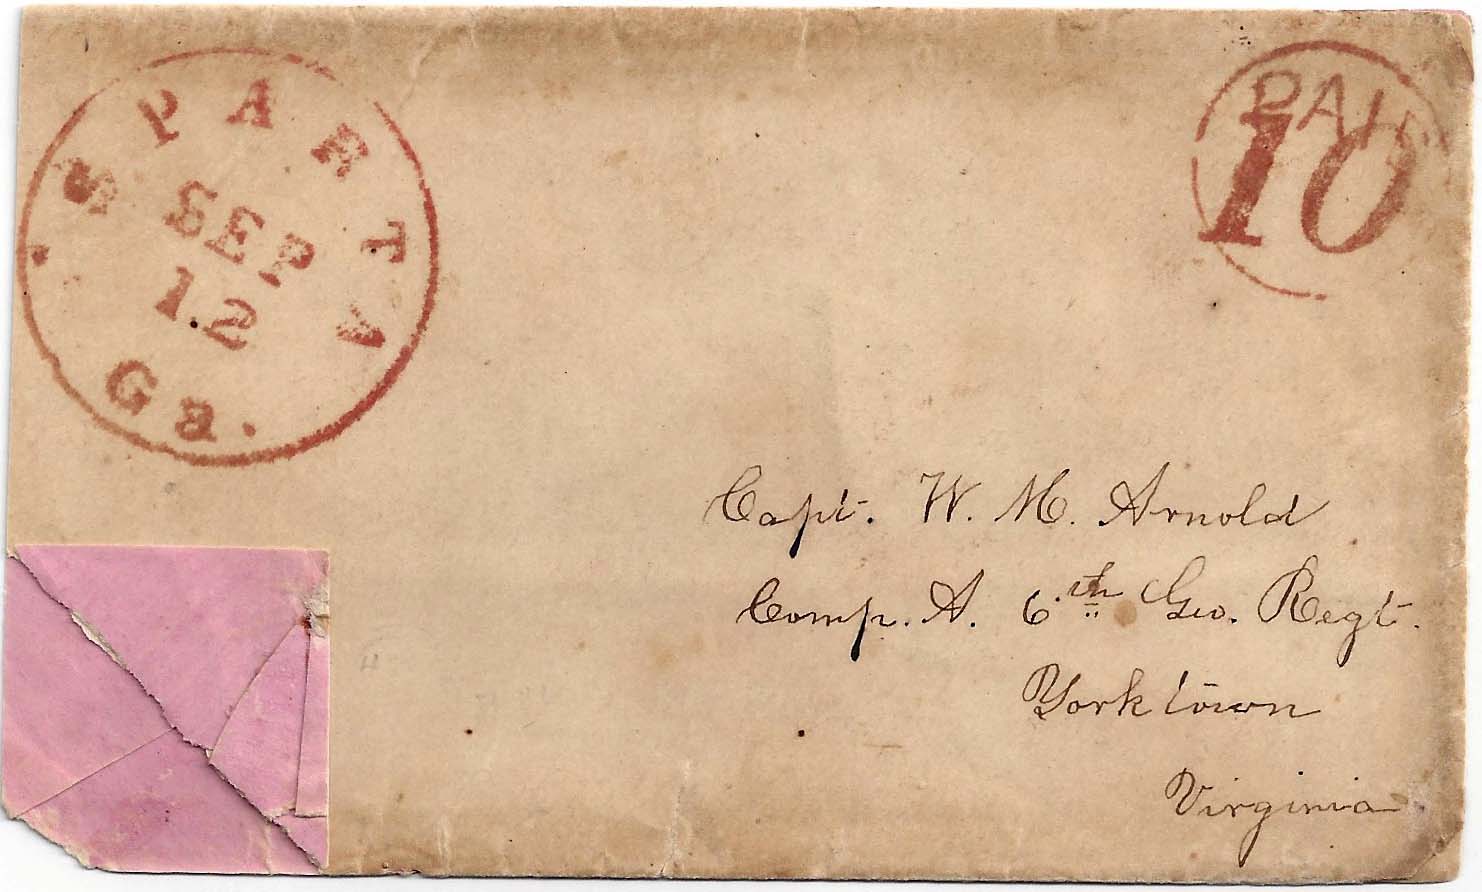 SPARTA
SEP
12
Ga.
PAID
10
Capt. W. M. Arnold
Comp. A. 6th Geo. Regt.
Yorktown
Virginia